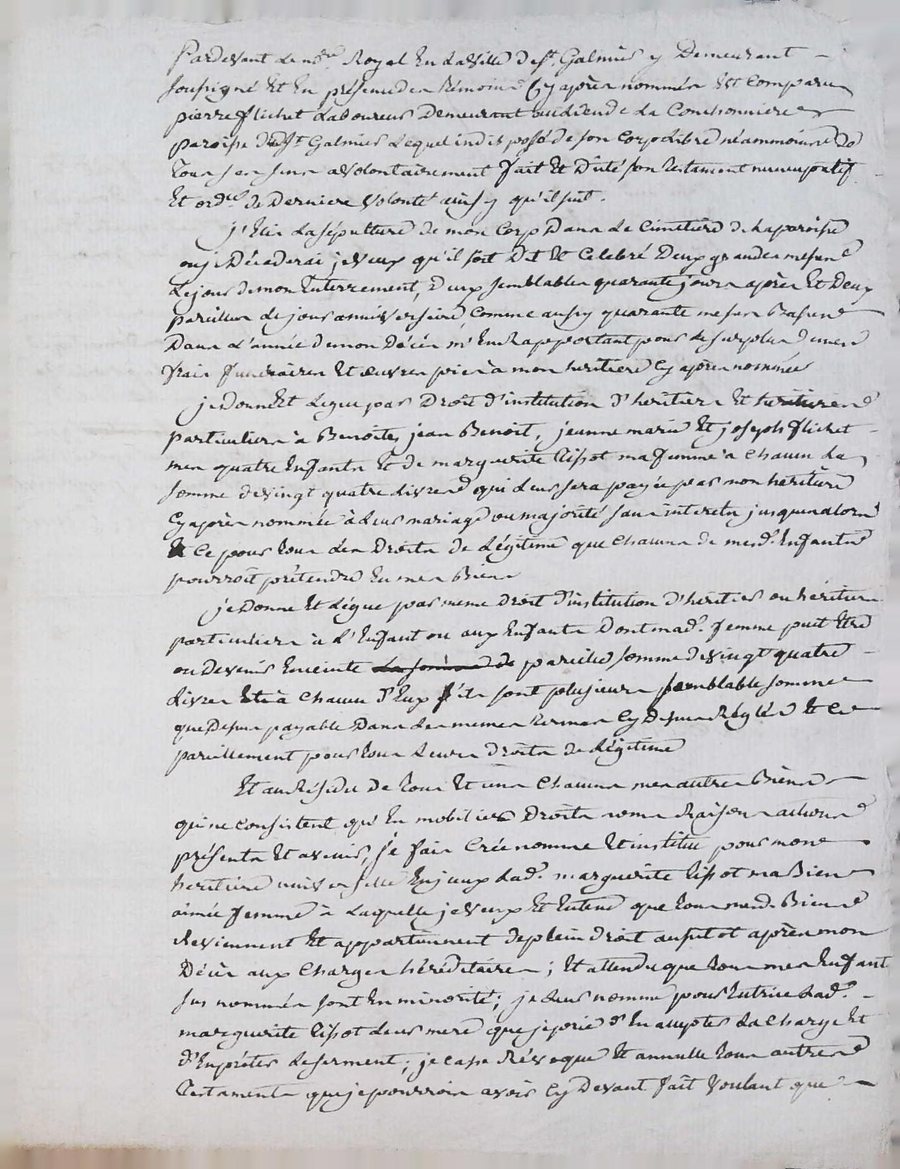 Pardevant Le no.re Royal En La Ville de st. Galmier y Demeurant
soussigné Et En présence des témoins Cy après nommés Est Comparu
pierre flichet Laboureur Demeurant au Lieu de La
paroisse de st. Galmier Lequel indisposé de son Corp Libre néammoins de
tous ses sens a volontairement fait Et Dicté son testament nuncupatif
Et ord.re de Derniere volonté ainsy qu'il suit.
j'Elis La sépulture de mon Corp Dans Le Cimetière de La paroisse
ou je Décederai je veux qu'il soit Dit Et Celebré Deux grandes messes
Le jour de mon Enterrement, Deux semblables quarante jours après Et Deux
pareilles Le jour anniversaire, Comme aussy quarante messes Basses
Dans L'année de mon Décès m'En Rapportant pour Le surplus de mes
frais funéraires Et œuvres pies à mon heritiere Cy après nommée
je Donne Et Legue par Droit d'institution d'heritiers Et heritieres
particuliers à Benoite, jean Benoit, jeanne marie Et joseph flichet
mes quatre Enfants Et de marguerite tissot ma femme a Chacun La
somme de vingt quatre Livres qui Leur sera payée par mon héritiere
Cy après nommée à Leur mariage ou majorité sans interets jusques alors
Et Ce pour tous Les Droits de Légitime que Chacun de mesd. Enfants
pourroit prétendre En mes Biens
je Donne Et Légue par meme Droit d'institution d'heritier ou héritiere
particuliers à L'Enfant ou aux Enfants Dont mad. femme peut Etre
ou Devenir Enceinte La somme de pareille somme de vingt quatre
Livres Et à Chacun d'Eux s'ils sont plusieurs semblable somme
que Dessus payable Dans Les memes termes Cy Dessus Réglés Et Ce
pareillement pour tous Leurs Droits de Légitime
Et au Résidu de tous Et uns Chacuns mes autres Biens
qui ne Consistent qu'En mobilier Droits noms Raisons actions
présents Et avenir, je fais Crée nomme Et institue pour mon
heritiere universelle Lad. marguerite tissot ma Bien
aimée femme à Laquelle je veux Et Entend que tous mesd. Biens
Reviennent Et appartiennent de plein Droit aussitot après mon
Décès aux Charges héréditaires; Et attendu que tous mes Enfants
sus nommés sont En minorité; je Leur nomme pour tutrice Lad.
marguerite tissot Leur mere que je prie d'En accepter La Charge Et
d'En prêter Le serment; je Casse Révoque Et annulle tous autres
testaments que je pourrois avoir Cy Devant fait Voulant que